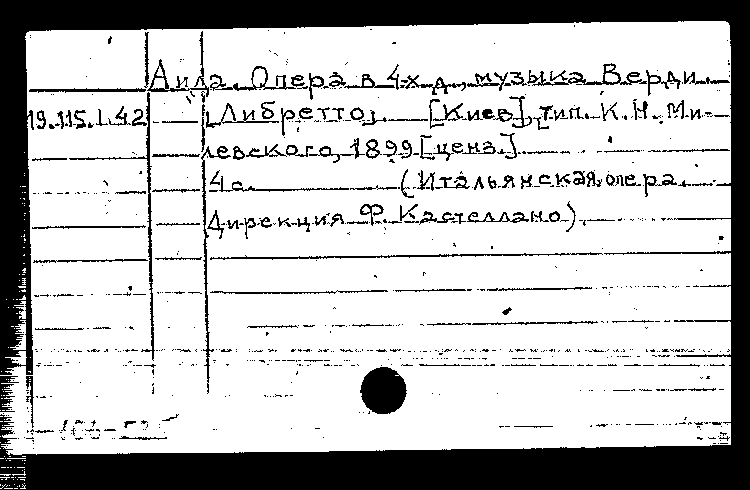 Аида. Опера в 4-х д., музыка Верди.
19.115.1.42 [Либретто]. [Киев], тип. К.Н. Ми-
левского, 1899 [ценз.]
4 с. (Итальянская опера.
Дирекция Ф. Кастеллано).